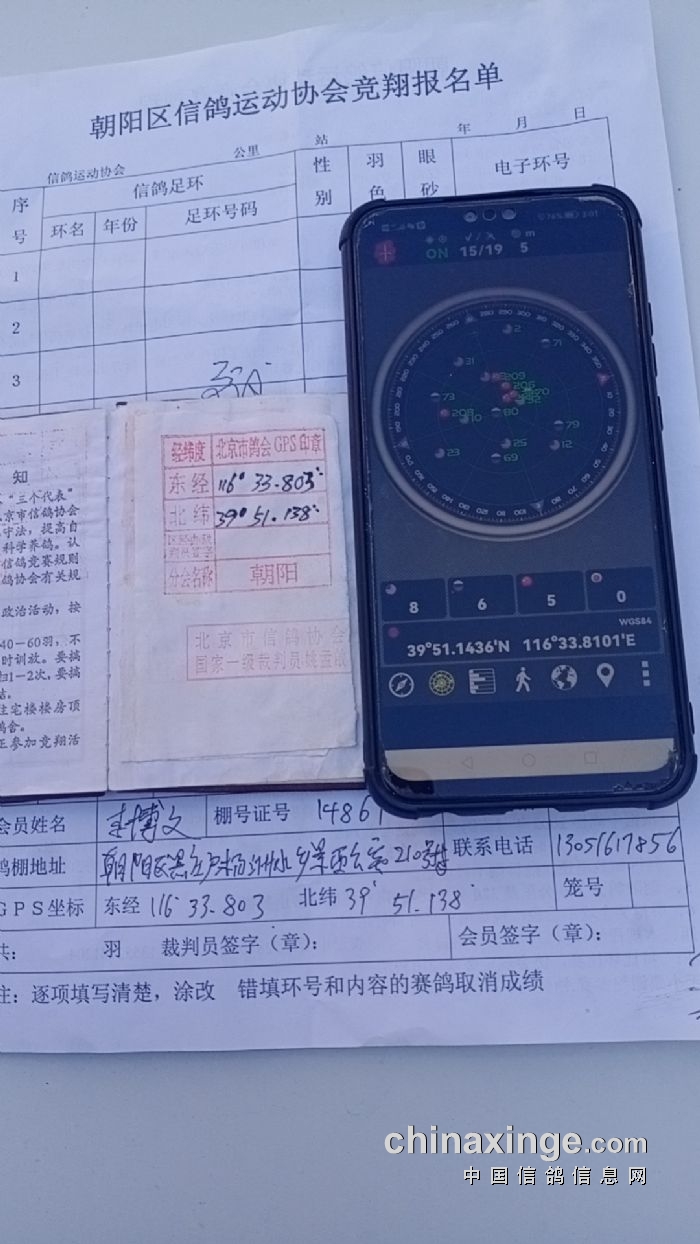 朝阳区信鸽运动协会竞翔报名单
信鸽运动协会 公里 站 年 月 日
序号 信鸽足环 性别 羽色 眼砂 电子环号
环名 年份 足环号码
1
2
3
76% 3:01
ON 15/19 5 m
2
71
31
209
206
73
208
10
80
32
79
25
12
23
69
8 6 5 0
WGS84
39°51.1436'N 116°33.8101'E
知
“三个代表”
京市信鸽协会
守法，提高自
科学养鸽。认
信鸽竞赛规则
鸽协会有关规
政治活动，按
40-60羽，不
时训放。要搞
扫1-2次，要搞
洁。
住宅楼楼房顶
鸽舍。
正参加竞翔活
经纬度 北京市鸽会GPS印章
东经 116° 33.803'
北纬 39° 51.138'
分会名称 朝阳
北京市信鸽协会
国家一级裁判员姚
会员姓名 博文 棚号证号 1486
鸽棚地址 朝阳区 210号 联系电话 13051617856
GPS坐标 东经 116° 33.803 北纬 39° 51.138 笼号
共： 羽 裁判员签字（章）： 会员签字（章）：
注：逐项填写清楚，涂改 错填环号和内容的赛鸽取消成绩
chinaxinge.com
中国信鸽信息网